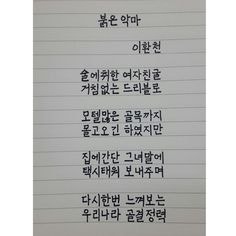 붉은 악마
이환천
술에취한 여자친굴
거침없는 드리블로
모텔많은 골목까지
몰고오긴 하였지만
집에간단 그녀말에
택시태워 보내주며
다시한번 느껴보는
우리나라 골결정력